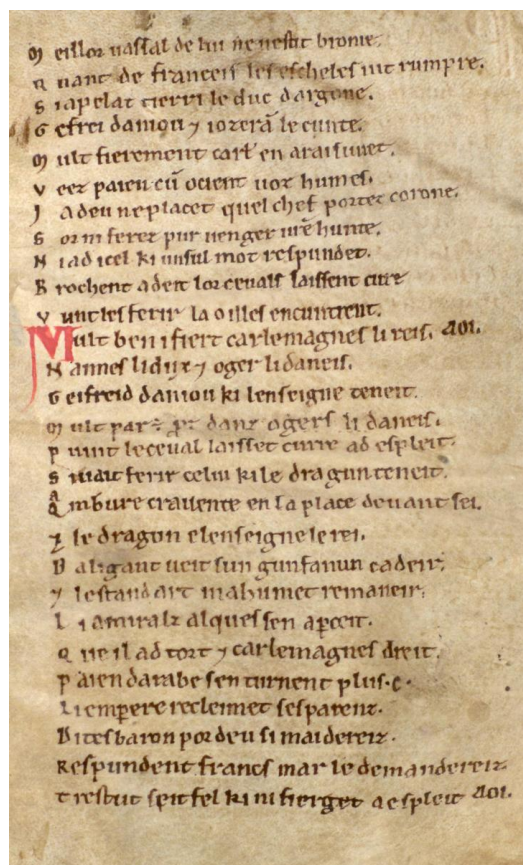 M eillor uassal de lui ne uestit bronie.
Q uant de franceis les escheles uit rumpre.
S i apelat tierri le duc dargone.
G efrei daniou ⁊ iozerā le cunte.
M ult fierement carł en araisunet.
V eez paien cū ocient uoz humes.
J a deu ne placet quel chef portez corone.
S or ni ferez pur uenger ur̄e hunte.
N i ad icel ki un sul mot respundet.
B rochent ad eit lor ceuals laissent cure
V unt les ferir la o il les encuntrent.
Mult ben i fiert carlemagnes li reis. AOI.
N aimes li dux ⁊ oger li daneis.
G eifreid daniou ki lenseigne teneit.
M ult par danz ogers li daneis.
P uint le ceual laisset curre ad espleit.
S i uait ferir celui ki le dragun teneit.
Q ambure crauente en la place deuant sei.
E le dragon e lenseigne le rei.
B aligant ueit sun gunfanun cadeir.
⁊ lestandart mahumet remaneir.
L i amiralz alques sen aꝑceit.
Q ue il ad tort ⁊ carlemagnes dreit.
P aien darabe sen turnent plus .c.
L i emꝑere recleimet ses parenz.
D ites baron por deu si maidereiz.
Respundent francs mar le demandereiz
T restut seit fel ki ni fierget a espleit AOI.